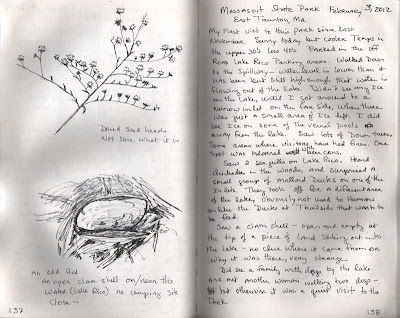 Dead seed heads
Not sure what it is
An odd find
An open clam shell on/near the
Water (Lake Rico) in camping site
Close -
137
Massasoit State Park February 3, 2012
East Taunton, Ma
My First visit to this park since last
November. Sunny today but cooler Temps in
the upper 30's low 40's. Parked in the off
Road Lake Rico Parking area. Walked Down
to the Spillway - water level is lower than it
has been but still high enough that water is
flowing out of the lake. Didn't see any ICE
on the Lake, until I got around to a
narrow inlet on the far side, when there
was just a small area of ice left. I did
see Ice on some of the vernal pools
away from the lake. Saw lots of Down trees,
Some areas where visitors have had fires. One
spot was littered with Beer cans.
Saw 2 sea gulls on Lake Rico, Heard
chickadees in the woods, and surprised a
small group of Mallard Ducks on one of the
Inlets. They took off for a different area
of the Lake, obviously not used to Humans
unlike the Ducks at Trailside that want to
be fed.
Saw a clam shell - open and empty at
the tip of a piece of land sticking out into
the lake - no clue where it came from or
why it was there, very strange.
Did see a family with dogs by the lake
and met another woman walking two dogs -
but otherwise it was a quiet visit to the
Park.
138